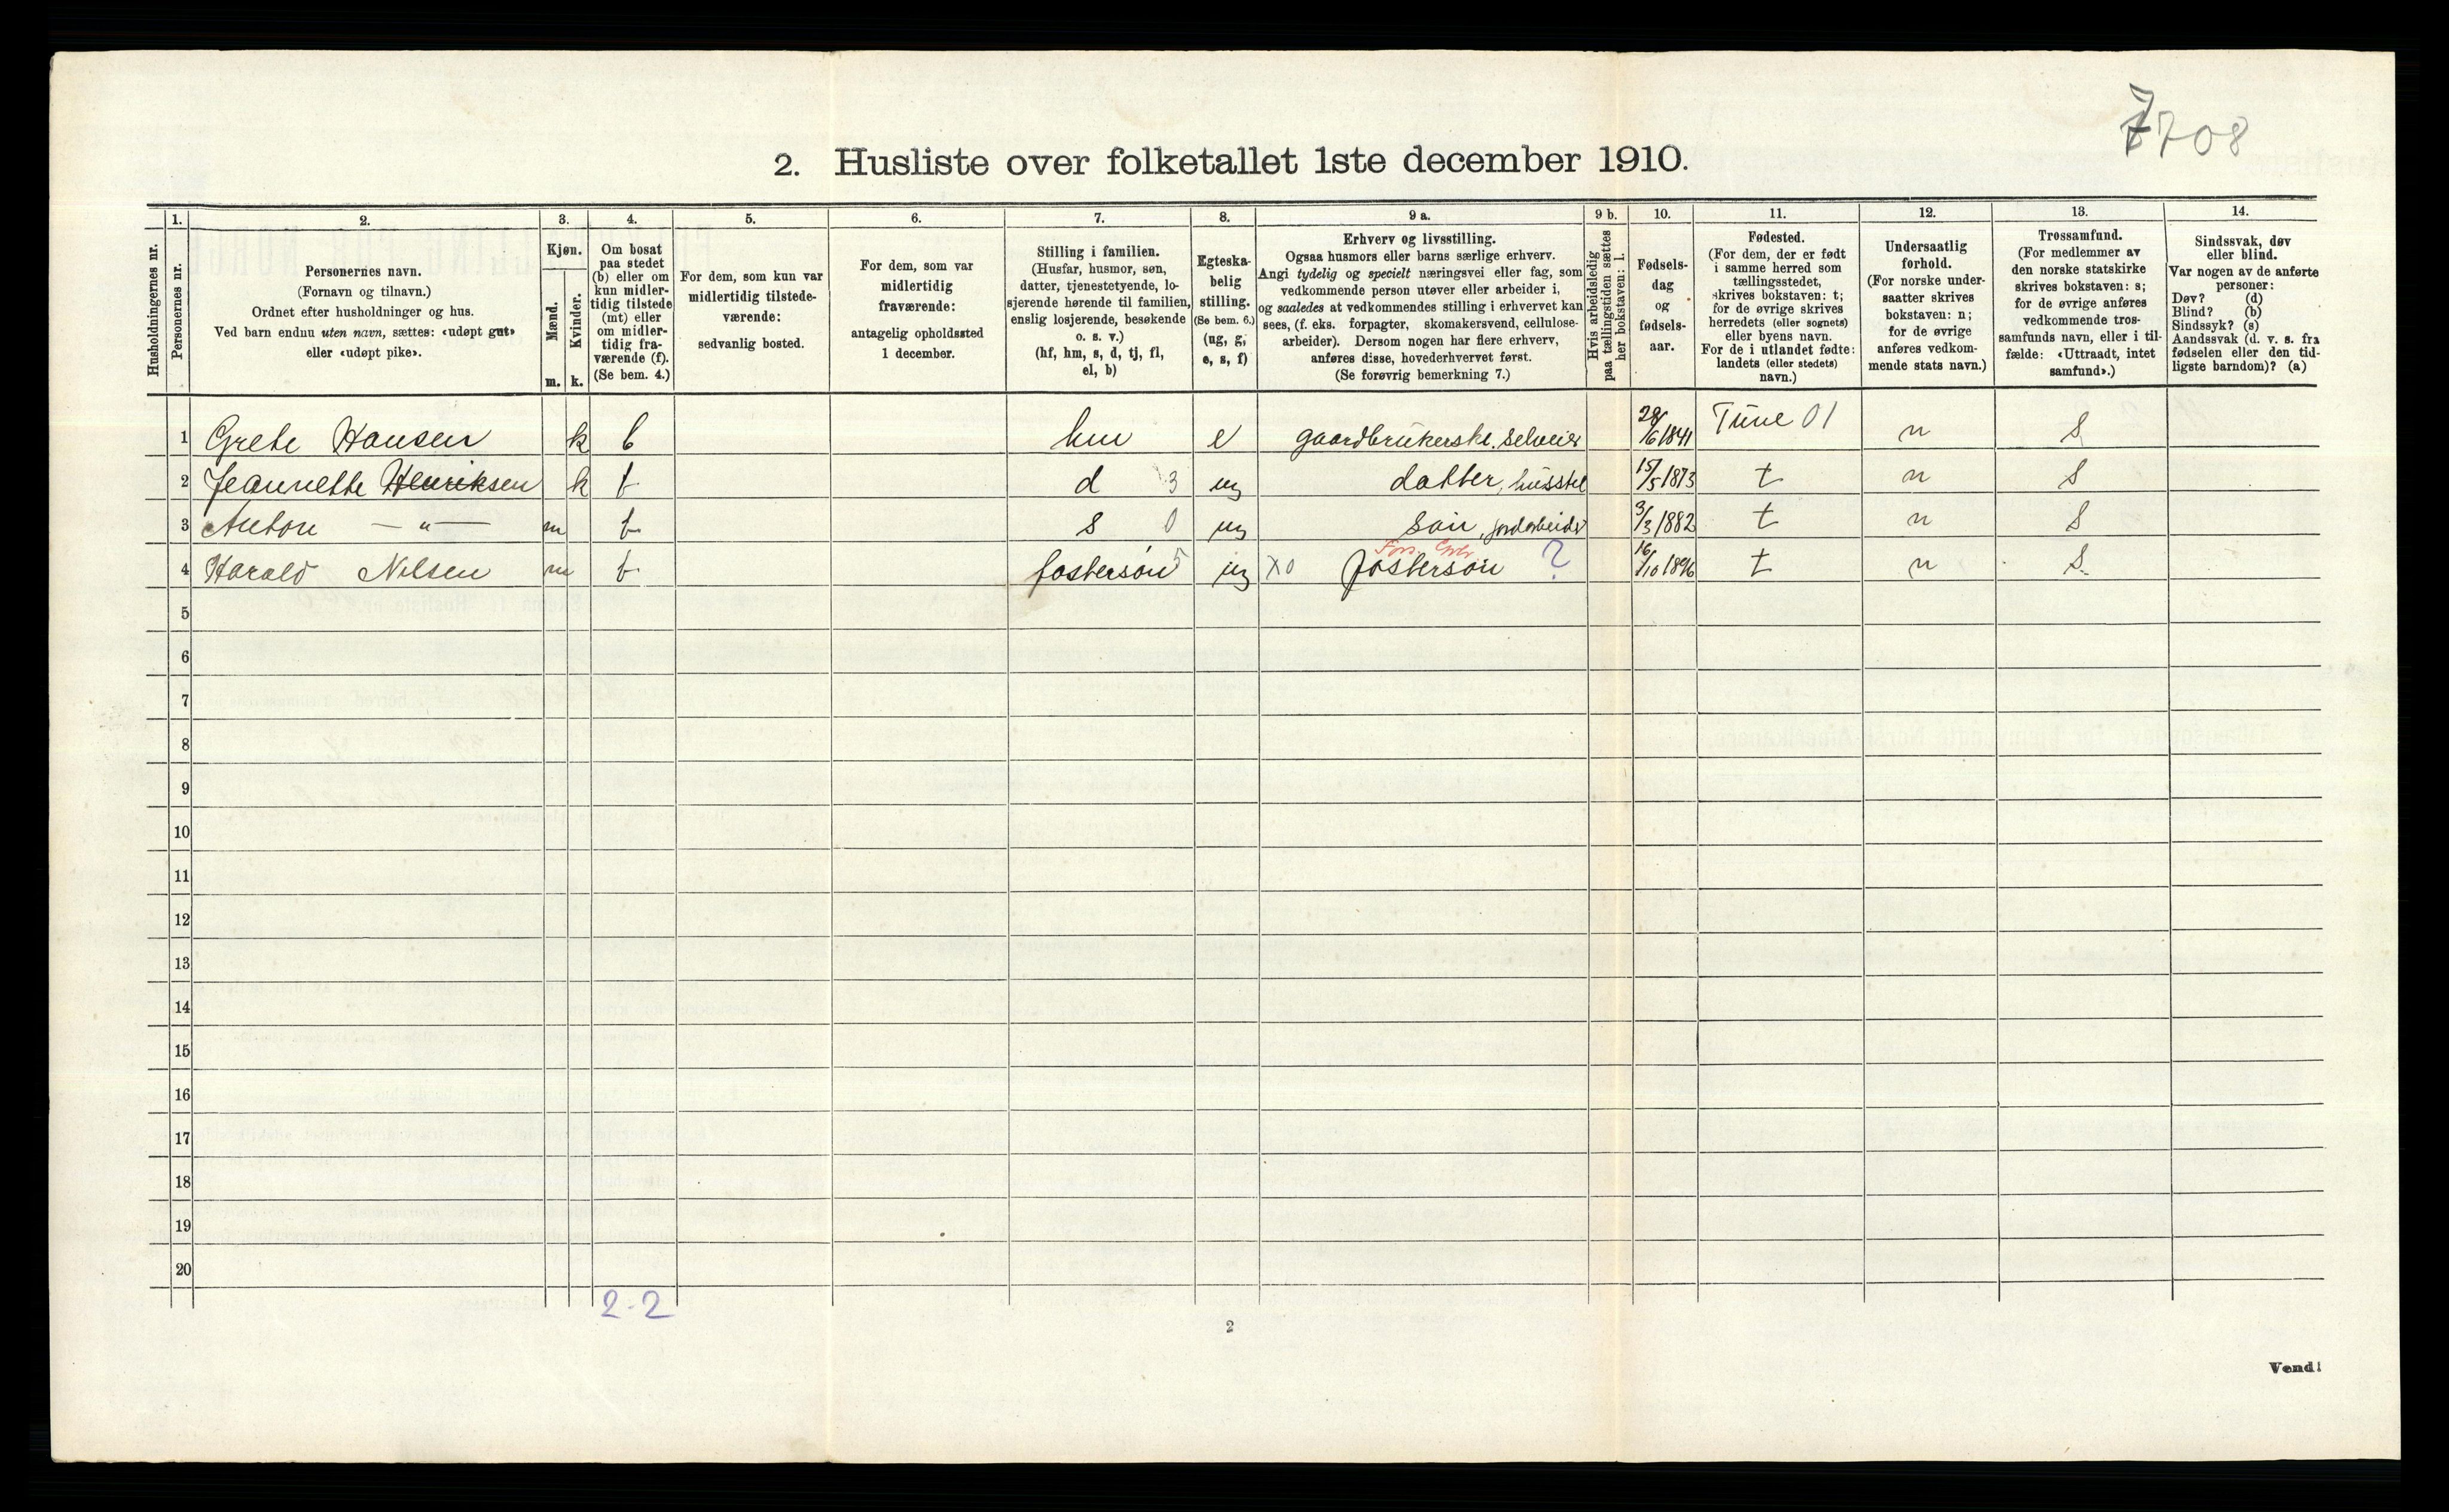 7708
2. Husliste over folketallet 1ste december 1910.
1. 2. 3. 4. 5. 6. 7. 8. 9 a. 9 b. 10. 11. 12. 13. 14.
Husholdningernes nr.
Personernes nr.
Personernes navn.
(Fornavn og tilnavn.)
Ordnet efter husholdninger og hus.
Ved barn endnu uten navn, sættes: «udøpt gut»
eller «udøpt pike».
Kjøn.
Mænd.
Kvinder.
m. k.
Om bosat
paa stedet
(b) eller om
kun midler-
tidig tilstede
(mt) eller
om midler-
tidig fra-
værende (f).
(Se bem. 4.)
For dem, som kun var
midlertidig tilstede-
værende:
sedvanlig bosted.
For dem, som var
midlertidig
fraværende:
antagelig opholdssted
1 december.
Stilling i familien.
(Husfar, husmor, søn,
datter, tjenestetyende, lo-
sjerende hørende til familien,
enslig losjerende, besøkende
o. s. v.)
(hf, hm, s, d, tj, fl,
el, b)
Egteska-
belig
stilling.
(Se bem. 6.)
(ug, g,
e, s, f)
Erhverv og livsstilling.
Ogsaa husmors eller barns særlige erhverv.
Angi tydelig og specielt næringsvei eller fag, som
vedkommende person utøver eller arbeider i,
og saaledes at vedkommendes stilling i erhvervet kan
sees, (f. eks. forpagter, skomakersvend, cellulose-
arbeider). Dersom nogen har flere erhverv,
anføres disse, hovederhvervet først.
(Se forøvrig bemerkning 7.)
Hvis arbeidsledig
paa tællingstiden sættes
her bokstaven: l.
Fødsels-
dag
og
fødsels-
aar.
Fødested.
(For dem, der er født
i samme herred som
tællingsstedet,
skrives bokstaven: t;
for de øvrige skrives
herredets (eller sognets)
eller byens navn.
For de i utlandet fødte:
landets (eller stedets)
navn.)
Undersaatlig
forhold.
(For norske under-
saatter skrives
bokstaven: n;
for de øvrige
anføres vedkom-
mende stats navn.)
Trossamfund.
(For medlemmer av
den norske statskirke
skrives bokstaven: s;
for de øvrige anføres
vedkommende tros-
samfunds navn, eller i til-
fælde: «Uttraadt, intet
samfund».)
Sindssvak, døv
eller blind.
Var nogen av de anførte
personer:
Døv? (d)
Blind? (b)
Sindssyk? (s)
Aandssvak (d. v. s. fra
fødselen eller den tid-
ligste barndom)? (a)
1 Grete Hansen k b hm e gaardbrukerske. selveier 28/6 1841 Tune 01 n S
2 Jeannette Henriksen k b d 3 ug datter, husstel 15/5 1873 t n S
3 Anton — " — m b s 0 ug søn, jordarbeider 3/3 1882 t n S
4 Harald Nilsen m b fostersøn 5 ug X0 fostersøn ? 16/10 1896 t n S.
5
6
7
8
9
10
11
12
13
14
15
16
17
18
19
20
2-2
2
Vend!